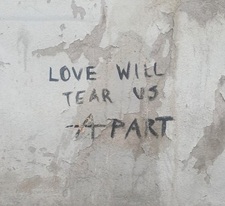 LOVE WILL
TEAR US
A PART